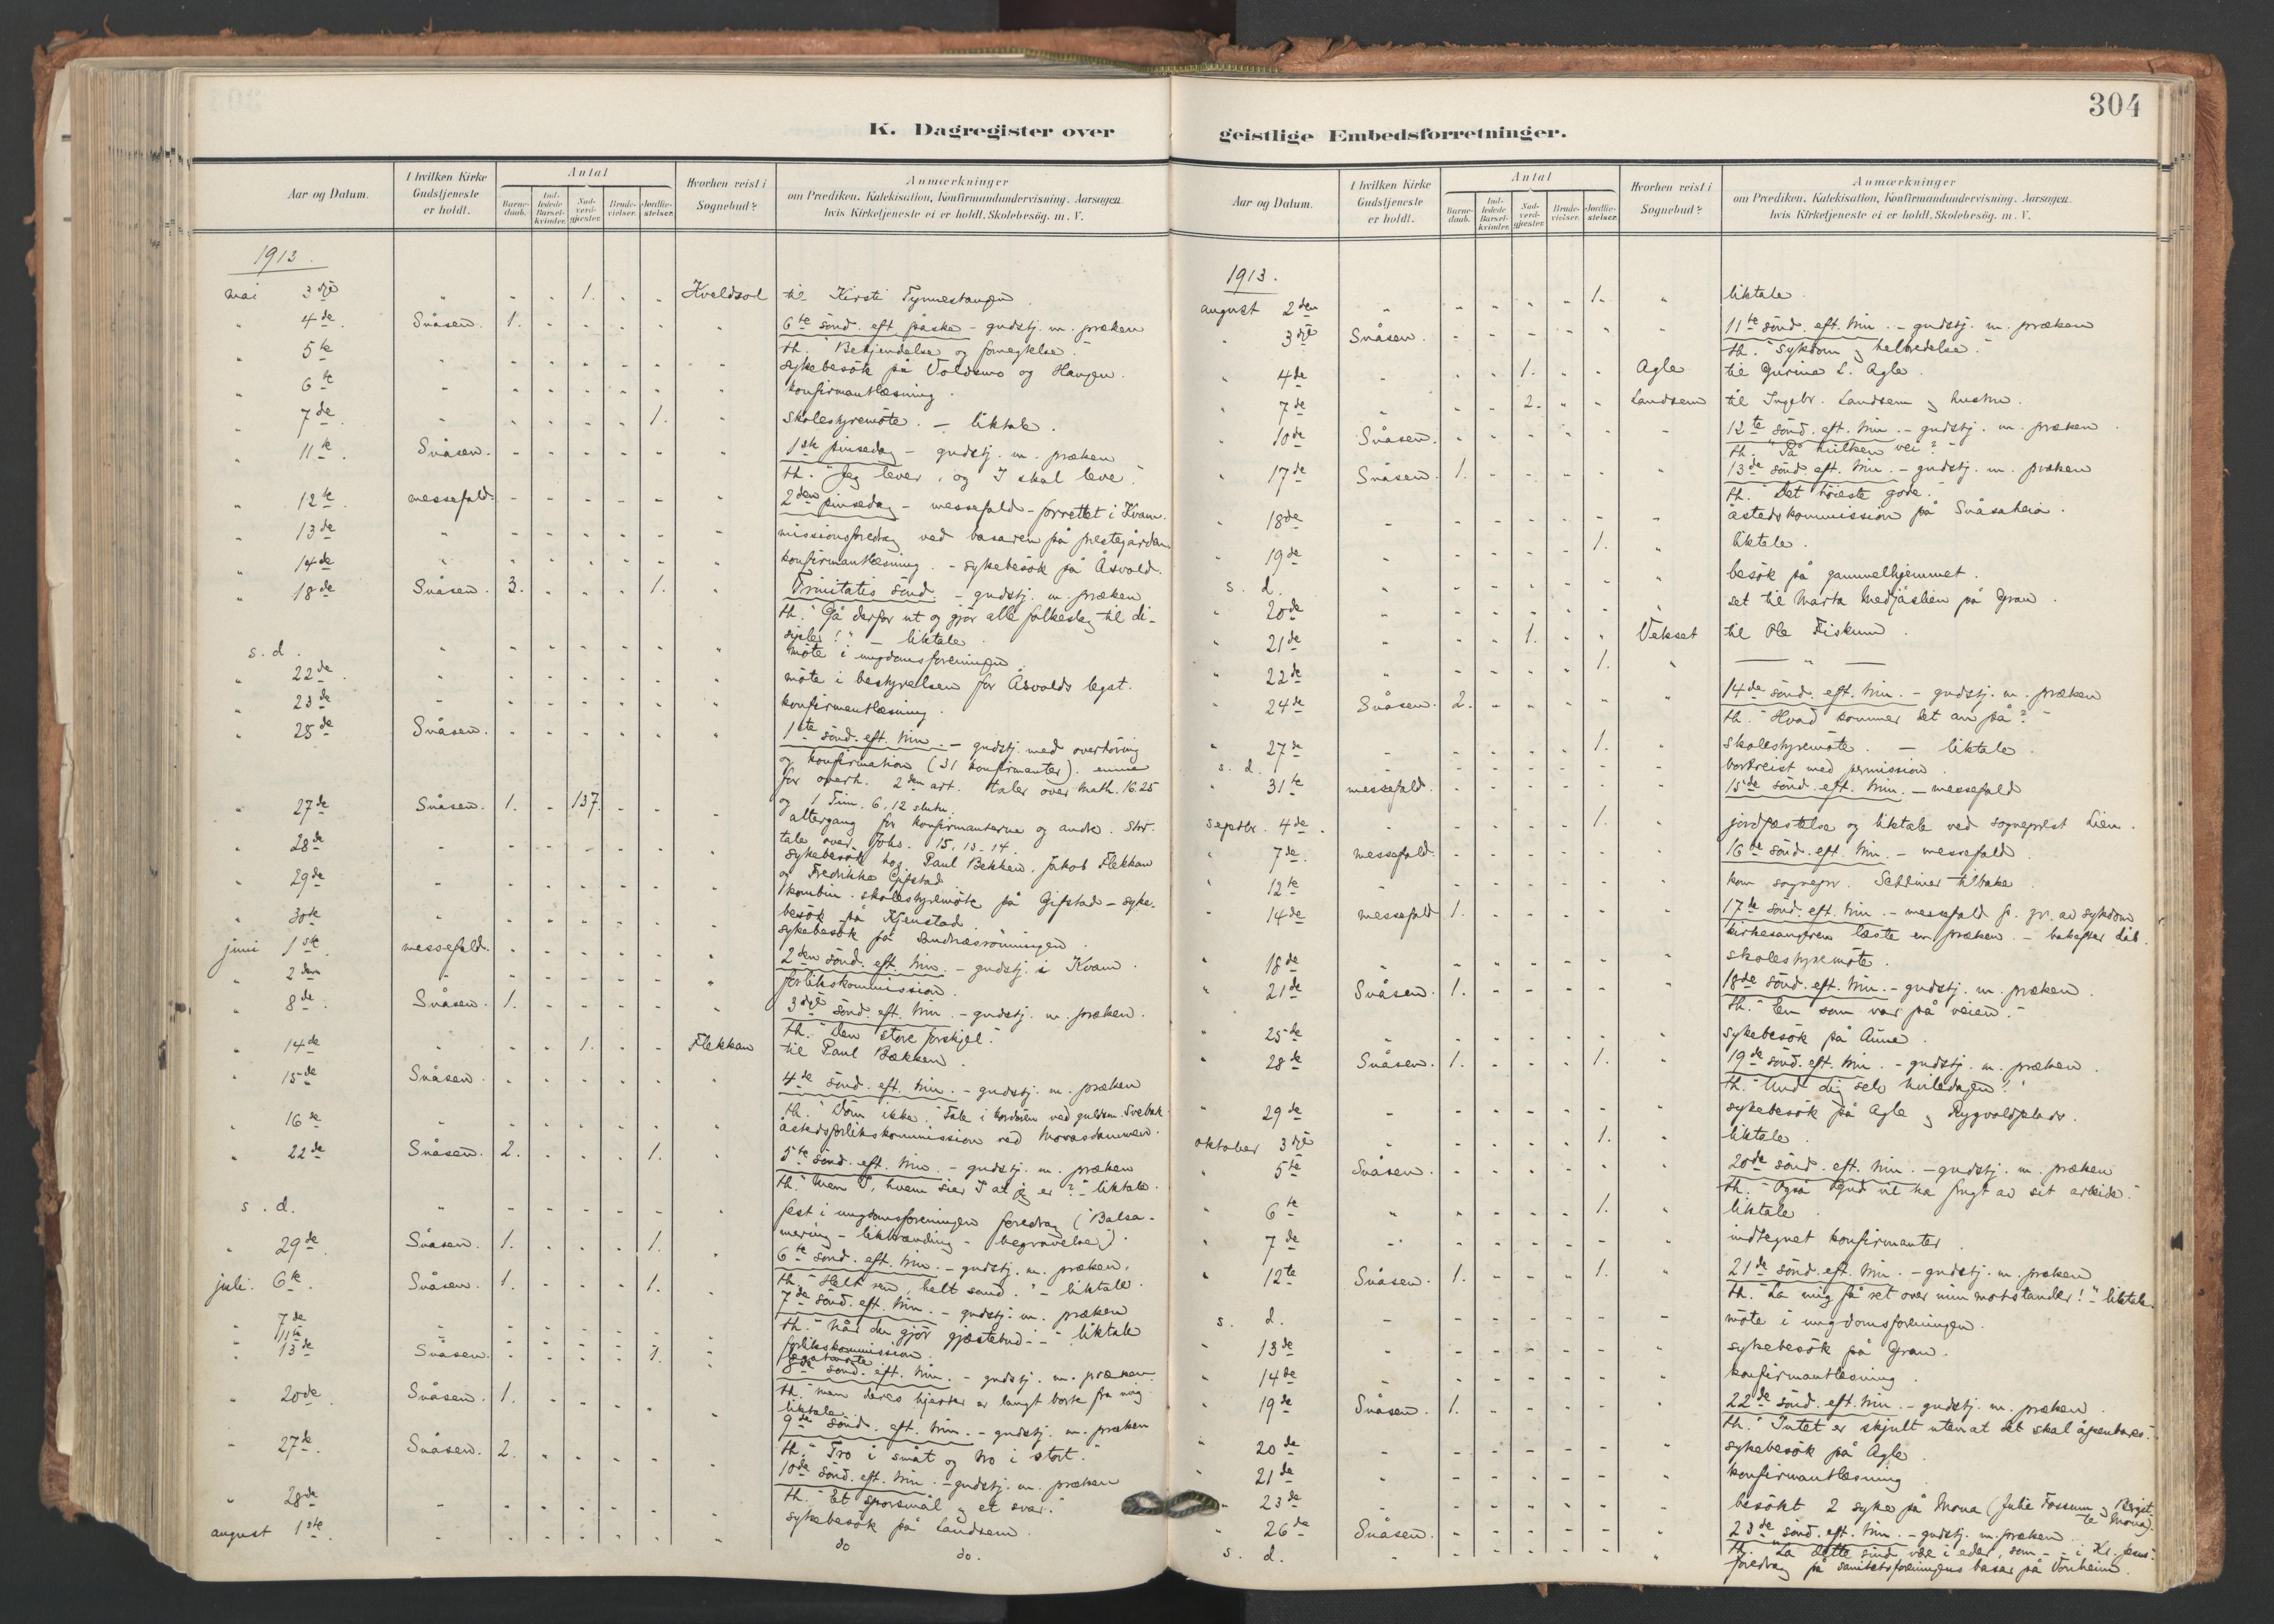 K. Dagregister over
Aar og Datum.
I hvilken Kirke Gudstjeneste er holdt.
Antal
Barnedaab.
Indledede Barselkvinder.
Nadverdgjæster.
Brudevielser.
Jordfæstelser.
Hvorhen reist i Sognebud?
Anmærkninger
om Prædiken. Katekisation, Konfirmandundervisning. Aarsagen.
hvis Kirketjeneste ei er holdt. Skolebesög. m. V.
1913.
mai 3dje " - - 1. - - Kveldsol til Kirsti Tynnestangen
" 4de. Snåsen. 1. - - - - " 6te sönd. eft. påske - gudstj. m. præken
th. "Bekjendelse og fornegtelse."
" 5te " - - - - - " sykebesök på Voldsmo og Haugen.
" 6te " - - - - - " konfirmantlæsning.
" 7de. " - - - - 1. " skolestyremöte. - liktale.
" 11te. Snåsen. - - - - - " 1ste pinsedag - gudstj. m. præken
th. "Jeg lever, og I skal leve."
" 12te. messefald. - - - - - " 2den pinsedag - messefald - forrettet i Kvam.
" 13de " - - - - - " missionsforedrag ved basaren på prestegården.
" 14de " - - - - - " konfirmantlæsning. - sykebesök på Åsvold.
" 18de Snåsen. 3. - - - 1. " Trinitatis sönd. - gudstj. m. præken
th. "Gå derfor ut og gjör alle folkeslag til di-
siple!" - liktale.
s. d. " - - - - - " möte i ungdomsforeningen.
" 22de. " - - - - - " möte i bestyrelsen for Åsvolds legat.
" 23de " - - - - - " konfirmantlæsning.
" 25de Snåsen. - - - - - " 1ste sönd. eft. trin. - gudstj. med overhöring
og konfirmation (31 konfirmanter). emne
for overh. 2den art. taler over Math. 16.25
og 1 Tim. 6,12 slutn.
" 27de Snåsen. 1. - 137. - - " altergang for konfirmanterne og andre. Skr.
tale over Johs. 15, 13-14.
" 28de " - - - - - " sykebesök hos Paul Bekken, Jakob Flekkan
og Fredrikke Gifstad
" 29de " - - - - - " kombin. skolestyremöte på Gifstad - syke-
besök på Kjenstad.
" 30te " - - - - - " sykebesök på
juni 1ste. messefald. - - - - - " 2den sönd. eft. trin. - gudstj. i Kvam.
" 2den " - - - - - " forlikskommission.
" 8de. Snåsen. 1. - - - - " 3dje sönd. eft. trin. - gudstj. m. præken.
th. "Den store forskjel."
" 14de " - - 1. - - Flekkan til Paul Bækken.
" 15de Snåsen. - - - - - " 4de sönd. eft. trin. - gudstj. m. præken
th. "Döm ikke." Tale i kordören ved guldsm. Svebak.
" 16de " - - - - - " åstedsforlikskommission ved Movasdammen.
" 22de Snåsen. 2. - - - 1. " 5te sönd. eft. trin. - gudstj. m. præken
th. "Men I, hvem sier I at jeg er?" liktale.
s. d. " - - - - - " fest i ungdomsforeningen foredrag ("Balsa-
mering - likbrænding - begravelse").
" 29de. Snåsen. 1. - - - 1. " 6te sönd. eft. trin. - gudstj. m. præken.
th. "Helt ren, helt sand." - liktale.
juli. 6te. Snåsen. 1. - - - 1. " 7de sönd. eft. trin. - gudstj. m. præken
th. "Når du gjör gjæstebud - -" liktale
" 7de " - - - - - " forlikskommission.
" 11te " - - - - - " legatmöte
" 13de Snåsen. - - - - 1. " 8de sönd. eft. trin. - gudstj. m. præken.
th. "men deres hjerter er langt borte fra mig.
liktale.
" 20de. Snåsen. 1. - - - - " 9de sönd. eft. trin. - gudstj. m. præken
th. "Tro i småt og tro i stort."
" 27de. Snåsen. 2. - - - - " 10de sönd. eft. trin. - gudstj. m. præken
th. "Et spörsmål og et svar."
" 28de " - - - - - " sykebesök på Landsem.
august 1ste. " - - - - - " do do.
304
geistlige Embedsforretninger.
Aar og Datum.
I hvilken Kirke Gudstjeneste er holdt.
Antal
Barnedaab.
Indledede Barselkvinder.
Nadverdgjæster.
Brudevielser.
Jordfæstelser.
Hvorhen reist i Sognebud?
Anmærkninger
om Prædiken. Katekisation, Konfirmandundervisning. Aarsagen.
hvis Kirketjeneste ei er holdt. Skolebesög. m. V.
1913.
august 2den " - - - - 1. " liktale.
" 3dje Snåsen. - - - - - " 11te sönd. eft. trin. - gudstj. m. præken
th. "Sykdom og helbredelse."
" 4de " - - 1. - - Agle til Gurine L. Agle.
" 7de " - - 2. - - Landsem til Ingebr. Landsem og hustru.
" 10de Snåsen. - - - - - " 12te sönd. eft. trin. - gudstj. m. præken.
th. "På hvilken vei?"
" 17de Snåsen. 1. - - - - " 13de sönd. eft. trin. - gudstj. m. præken
th. "Det höieste gode."
" 18de " - - - - - " åstedskommission på Snåsaheia.
" 19de " - - - - 1. " liktale.
s. d. " - - - - - " besök på gammelhjemmet.
" 20de " - - - - - " set til Marta Medjåslien på Gran.
" 21de " - - 1. - - Vekset til Ole Fiskum.
" 22de " - - - - 1. " — " —
" 24de Snåsen. 2. - - - - " 14de sönd. eft. trin. - gudstj. m. præken
th. "Hvad kommer det an på?"
" 27de " - - - - 1. " skolestyremöte. - liktale.
s. d. " - - - - - " bortreist med permission.
" 31te messefald. - - - - - " 15de sönd. eft. trin. - messefald
septbr. 4de. " - - - - 1. " jordfæstelse og liktale ved sogneprest Lien.
" 7de. messefald. - - - - - " 16de sönd. eft. trin. - messefald.
" 12te " - - - - - " kom sognepr. tilbake.
" 14de messefald 1. - - - - " 17de sönd. eft. trin. - messefald p. gr. av sykdom
kirkesangeren læste en præken. - bakefter dåb.
" 18de " - - - - - " skolestyremöte.
" 21de Snåsen. 1. - - - - " 18de sönd. eft. trin. - gudstj. m. præken.
th. "En som var på veien."
" 25de " - - - - - " sykebesök på Aune.
" 28de Snåsen. 1. - - - 1. " 19de sönd. eft. trin. - gudstj. m. præken.
th. "Und dig selv hviledagen!"
" 29de " - - - - - " sykebesök på Agle og Rygvoldplads.
oktober 3dje " - - - - 1. " liktale.
" 5te Snåsen. - - - - - " 20de sönd. eft. trin. - gudstj. m. præken
th. "Også Gud vil ha frugt av sit arbeide."
" 6te " - - - - 1. " liktale
" 7de " - - - - - " indtegnet konfirmanter.
" 12te Snåsen. 1. - - - 1. " 21de sönd. eft. trin. - gudstj. m. præken
th. "La mig få ret over min motstander!" liktale.
s. d. " - - - - - " möte i ungdomsforeningen.
" 13de " - - - - - " sykebesök på Gran.
" 14de " - - - - - " konfirmantlæsning.
" 19de Snåsen. 1. - - - - " 22de sönd. eft. trin. - gudstj. m. præken.
th. "Intet er skjult uten at det skal åpenbares."
" 20de " - - - - - " sykebesök på Agle.
" 21de " - - - - - " konfirmantlæsning
" 23de " - - - - - " besökt 2 syke på Mona (Julie Fossum og Bergit-
te Mona).
" 26de Snåsen. - - - - - " 23de sönd. eft. trin. - gudstj. m. præken.
th. "La dette sind være i eder, som - - i Kr. Jesus."
s. d. " - - - - - " foredrag på sanitetsforeningens basar på Vonheim.